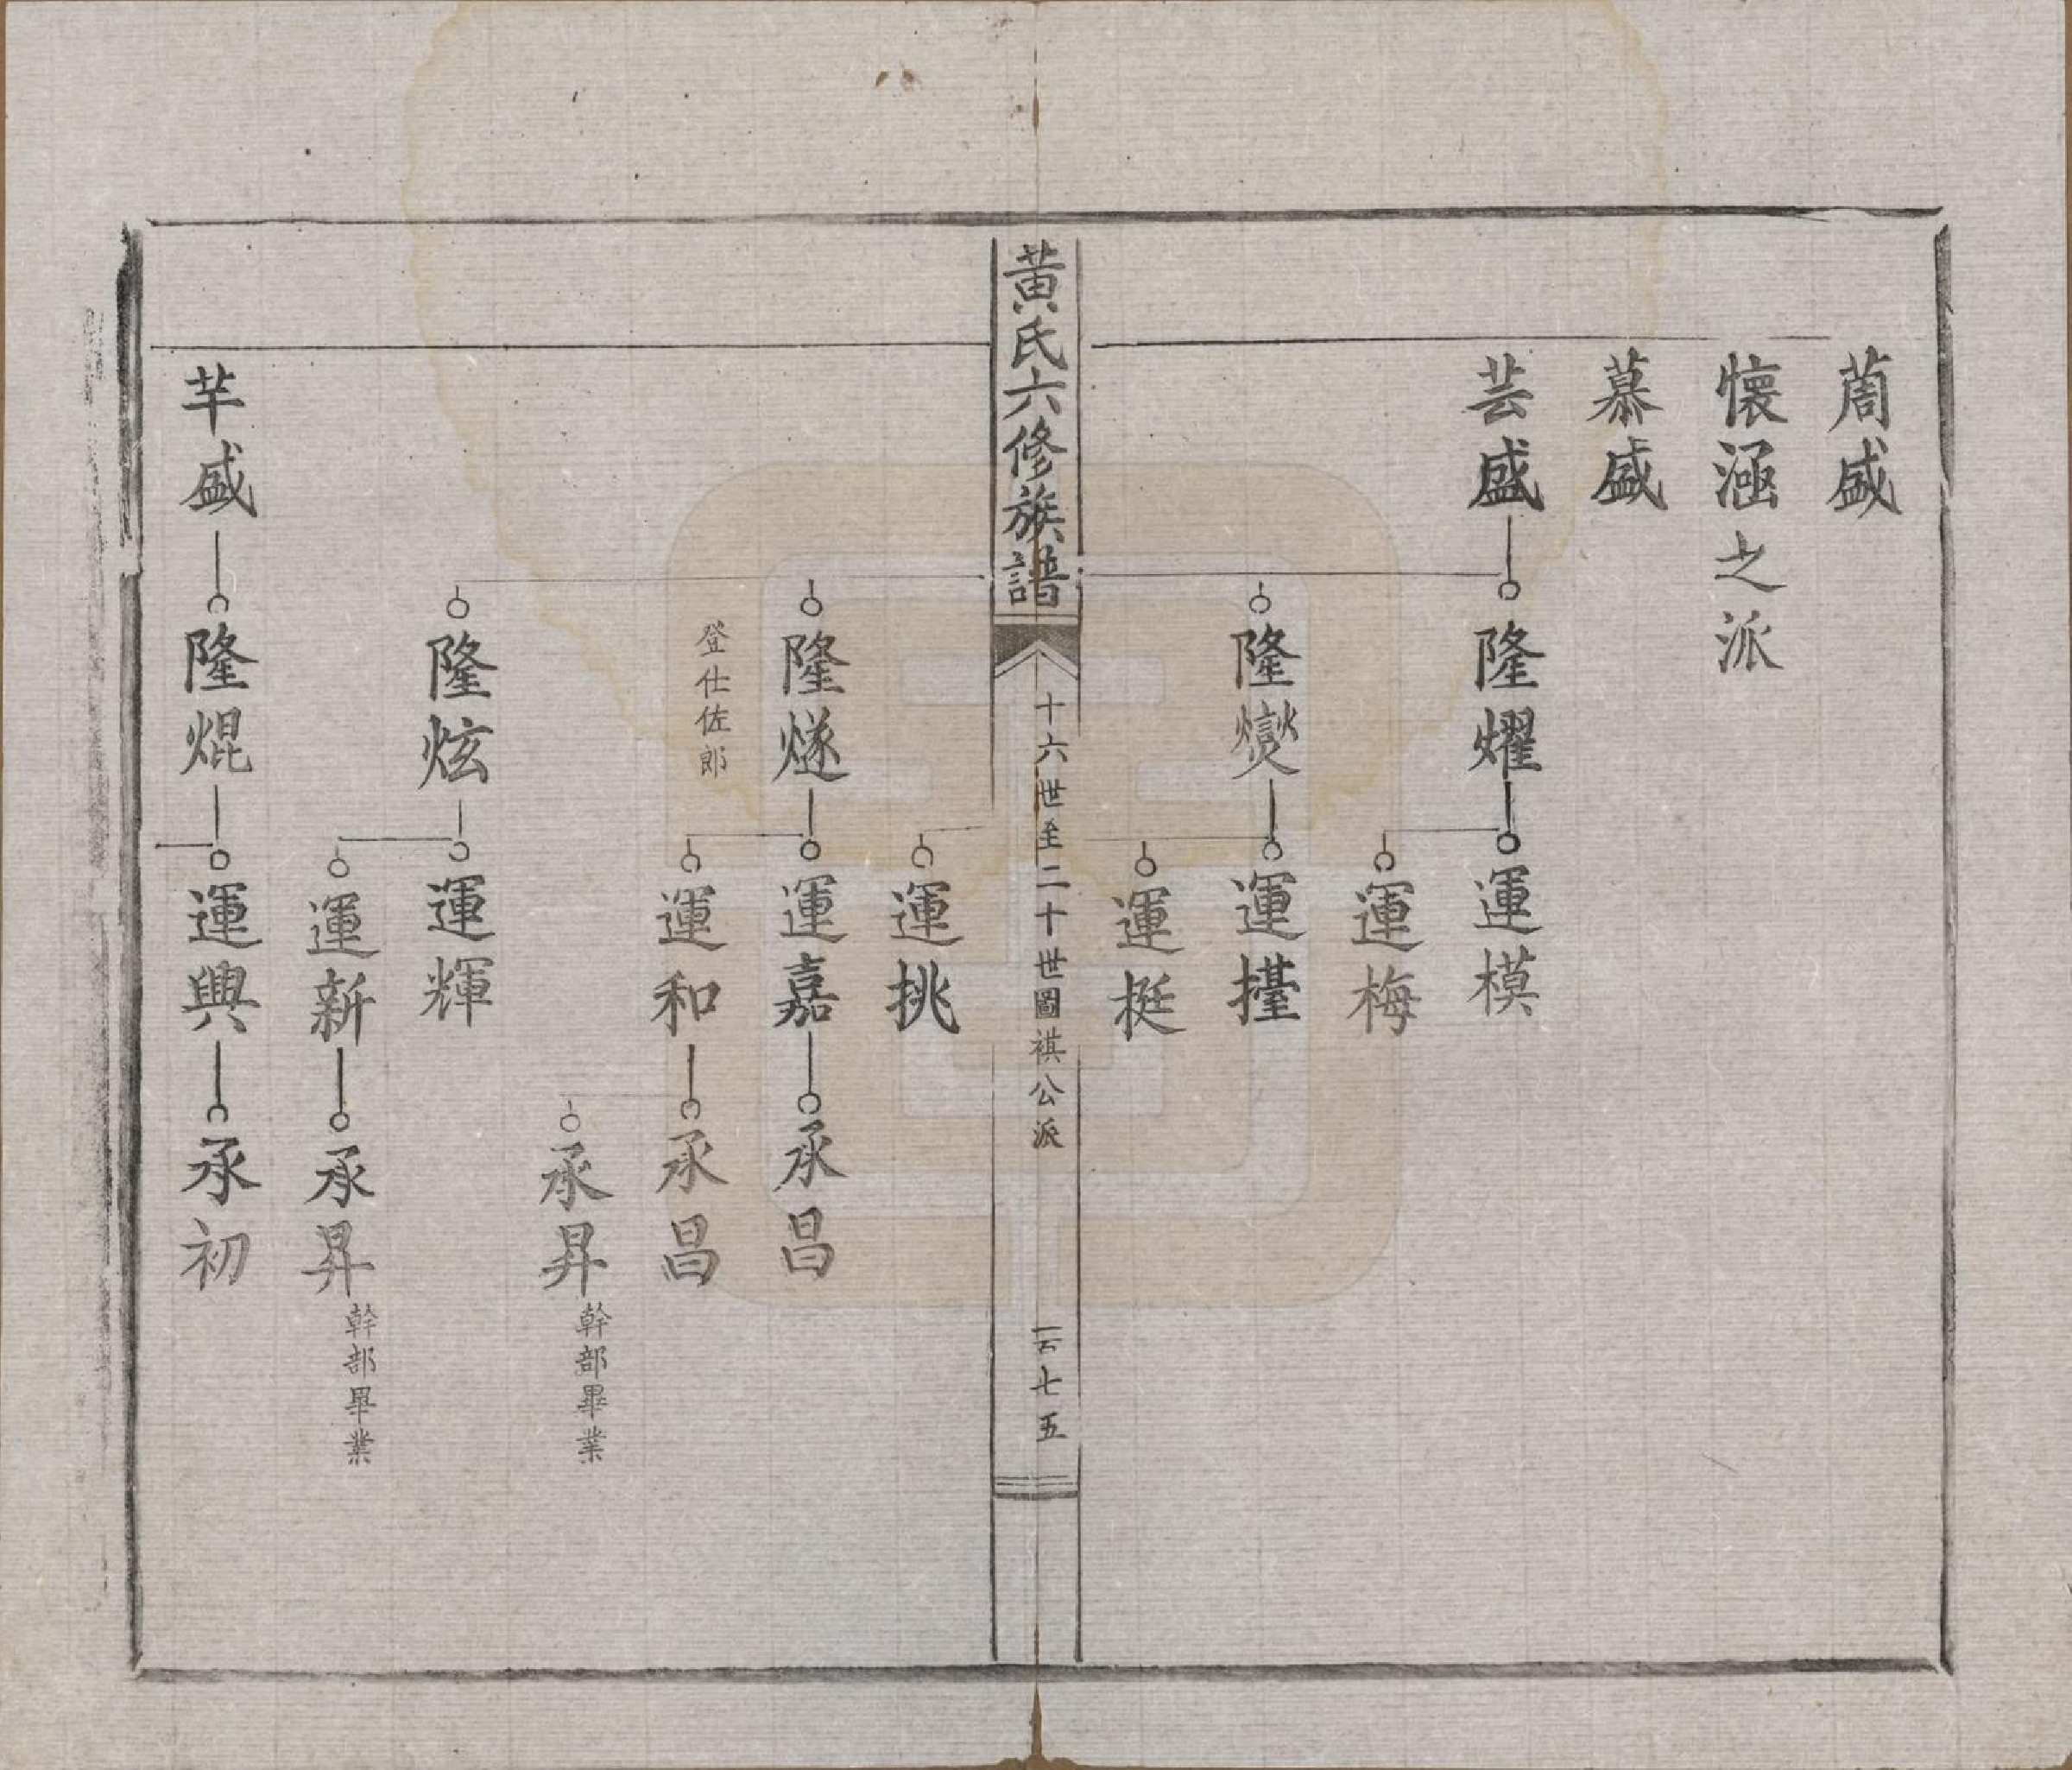 萮盛
懷涵之派
慕盛
芸盛
隆燿
運模
運梅
隆燮
運擡
運挺
黃氏六修族譜
十六世至二十世圖祺公派
七五
運挑
隆燧
登仕佐郎
運嘉
承昌
運和
承昌
承昇
幹部畢業
隆炫
運輝
運新
承昇
幹部畢業
芉盛
隆焜
運興
承初